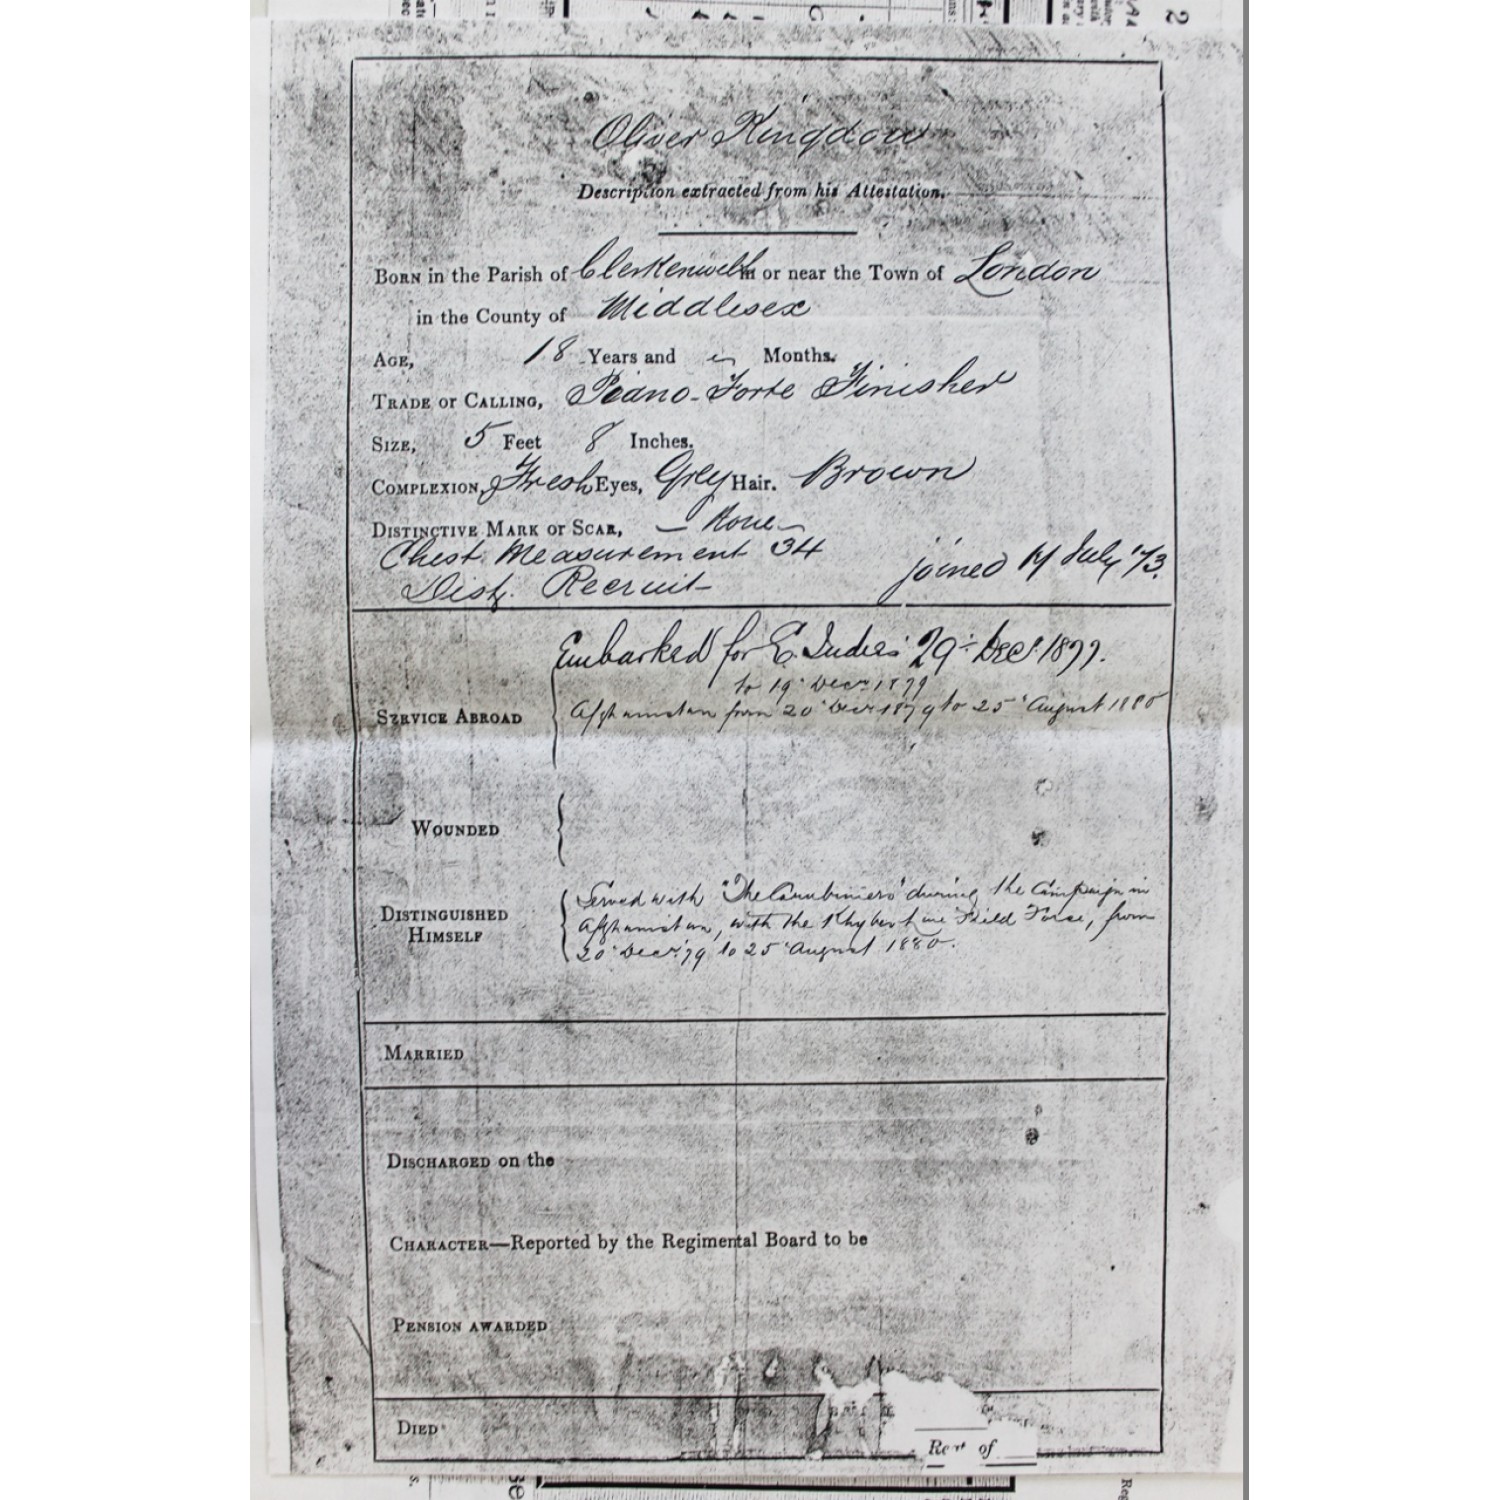 Oliver Kingdow
Description extracted from his Attestation.
BORN in the Parish of Clerkenwell in or near the Town of London
in the County of Middlesex
AGE, 18 Years and Months.
TRADE OR CALLING, Piano-Forte Finisher
SIZE, 5 Feet 8 Inches.
COMPLEXION, Fresh Eyes, Grey Hair. Brown
DISTINCTIVE MARK OR SCAR, — None —
Chest Measurement 34
Dist. Recruit joined July '73.
Embarked for E. Indies 29 Decr 1877.
to 19 Decr 1879
SERVICE ABROAD Afghanistan from 20 Decr 1879 to 25 August 1880
WOUNDED
Served with "The Carabiniers" during the Campaign in
DISTINGUISHED HIMSELF Afghanistan, with the Khyber Line Field Force, from
20 Decr '79 to 25 August 1880.
MARRIED
DISCHARGED on the
CHARACTER—Reported by the Regimental Board to be
PENSION AWARDED
DIED
of